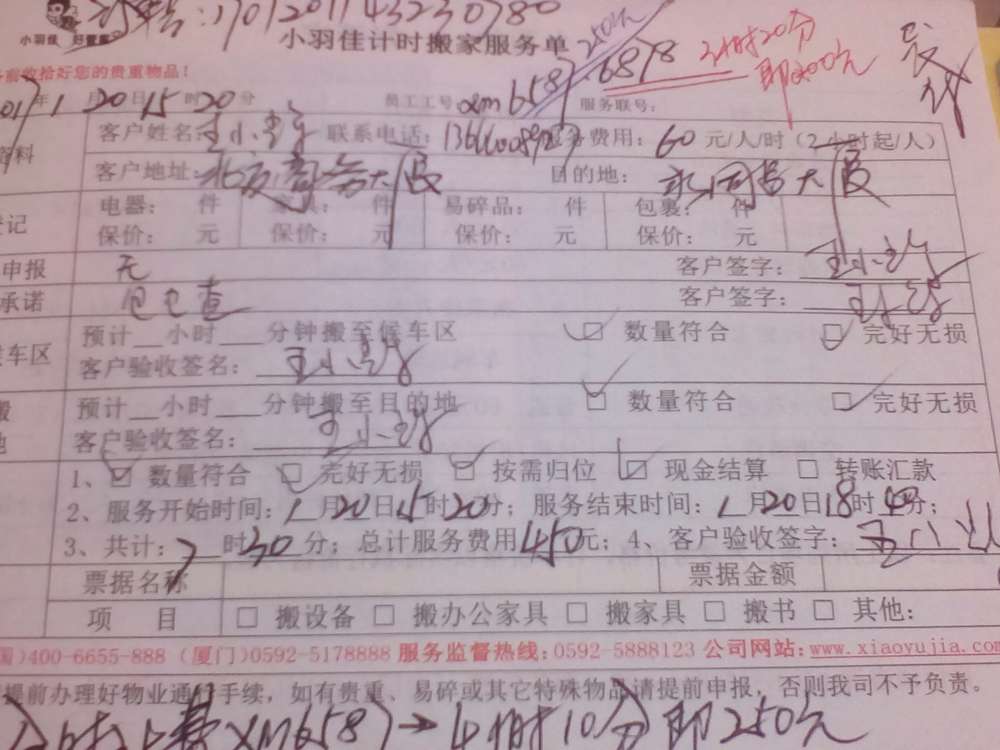 17012011143230780
小羽佳 好管家
小羽佳计时搬家服务单
250元
6878 3小时20分
即200元
收拾好您的贵重物品！
2017年1月20日15时20分 员工工号：xm6587 服务联号：
资料 客户姓名： 联系电话： 服务费用：60元/人/时（2小时起/人）
客户地址：北方商务大厦 目的地：大厦
登记 电器： 件 家具： 件 易碎品： 件 包裹： 件
保价： 元 保价： 元 保价： 元 保价： 元
申报 无 客户签字：
承诺 客户签字：
车区 预计__小时___分钟搬至候车区 ☑ 数量符合 ☑ 完好无损
客户验收签名：
搬 预计__小时___分钟搬至目的地 ☑ 数量符合 ☑ 完好无损
地 客户验收签名：
1、☑ 数量符合 ☑ 完好无损 ☑ 按需归位 ☑ 现金结算 □ 转账汇款
2、服务开始时间：1月20日15时20分；服务结束时间：1月20日18时分；
3、共计：7时30分；总计服务费用450元；4、客户验收签字：
票据名称 票据金额
项 目 □ 搬设备 □ 搬办公家具 □ 搬家具 □ 搬书 □ 其他：
国)400-6655-888（厦门)0592-5178888 服务监督热线：0592-5888123 公司网站：www.xiaoyujia.com
提前办理好物业通行手续，如有贵重、易碎或其它特殊物品请提前申报，否则我司不予负责。
xm6587→4小时10分即250元